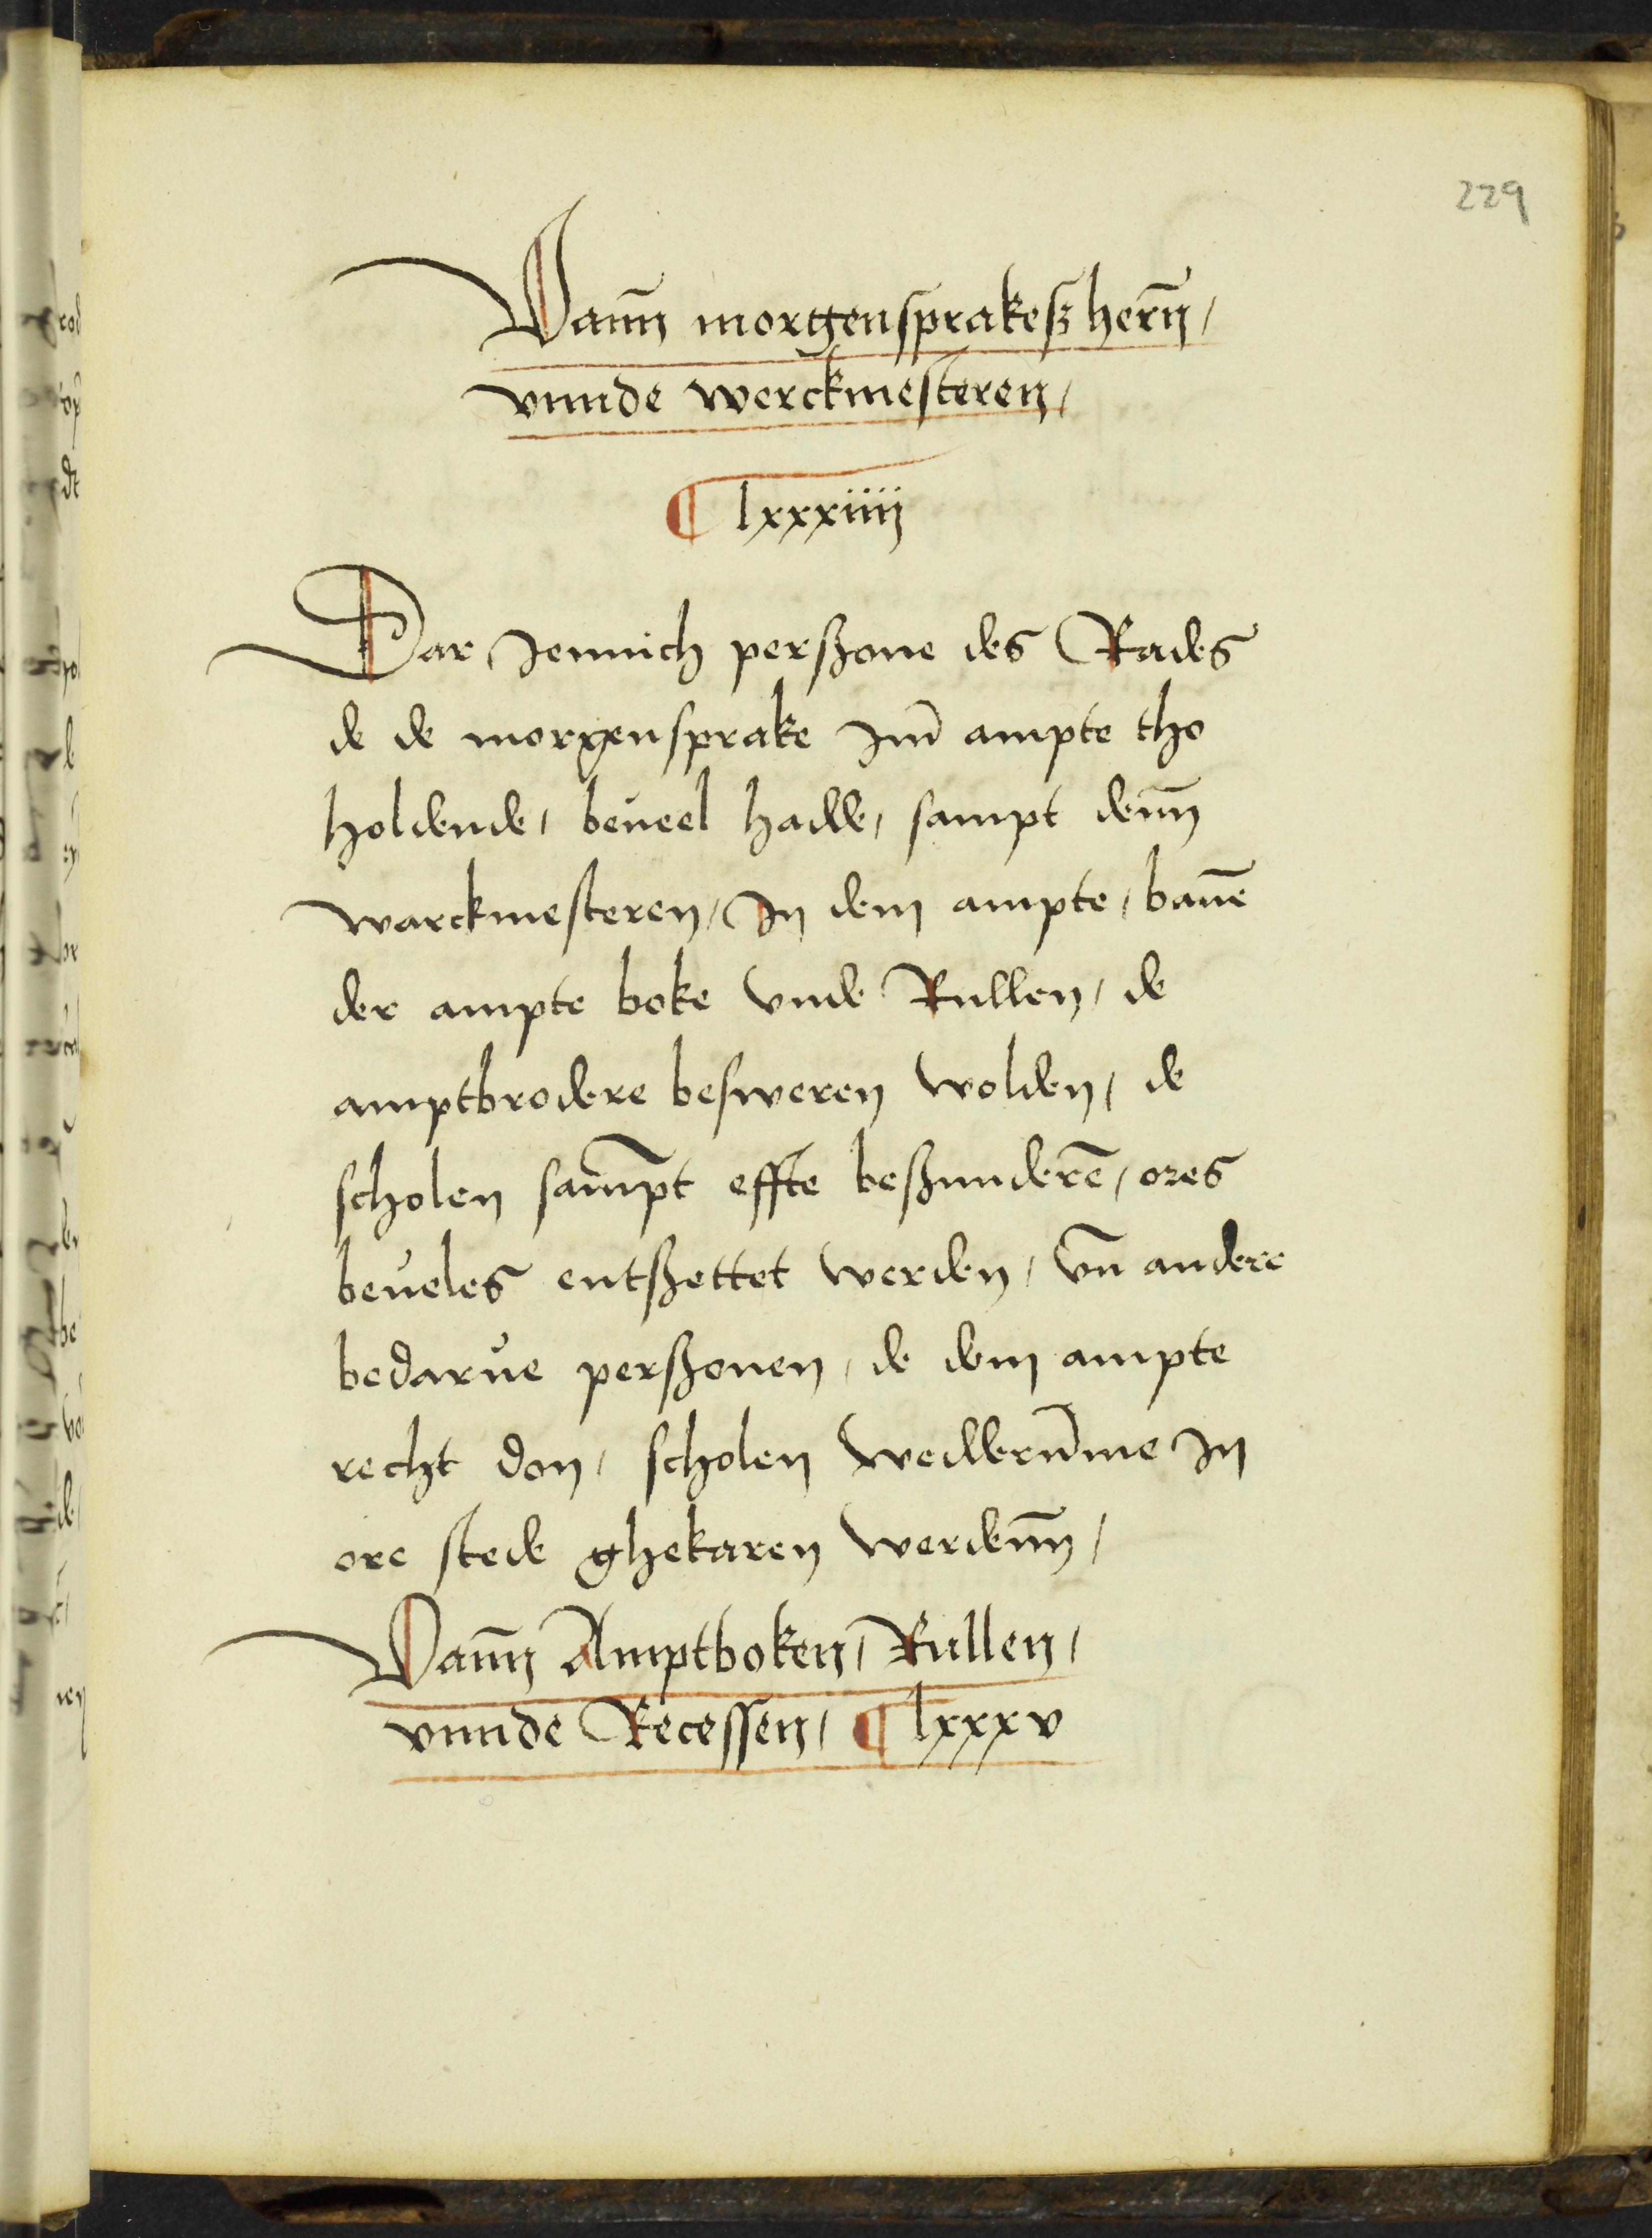 229
Vann̄ morgensprakeß hern̄,
vnnde werckmesteren,
¶ lxxxiiij
Dar Jennich perßone des Rades
de de morgensprake Jm̄ ampte tho
holdende, beueel hadde, sampt denn̄
warckmesteren, Jn dem ampte, bauē
der ampte boke vnde Rullen, de
amptbrodere besweren wolden, de
scholen sam̄pt effte beßunderē, ores
beueles entßettet werden, vn̄ andere
bedarue perßonen, de dem ampte
recht don, scholen wedderūme Jn
ore stede ghekaren werdenn̄,
Vann̄ Amptboken, Rullen,
vnnde Recessen, ¶ lxxxv